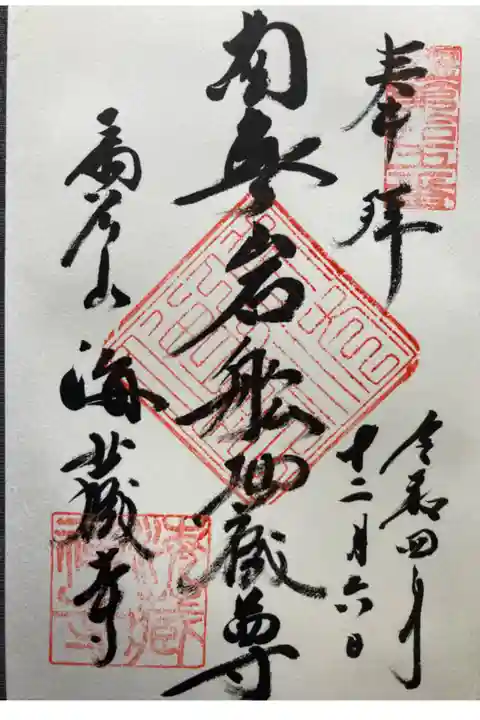 奉拝
令和四年
十二月六日
南無岩船地蔵尊
扇谷山 海蔵寺